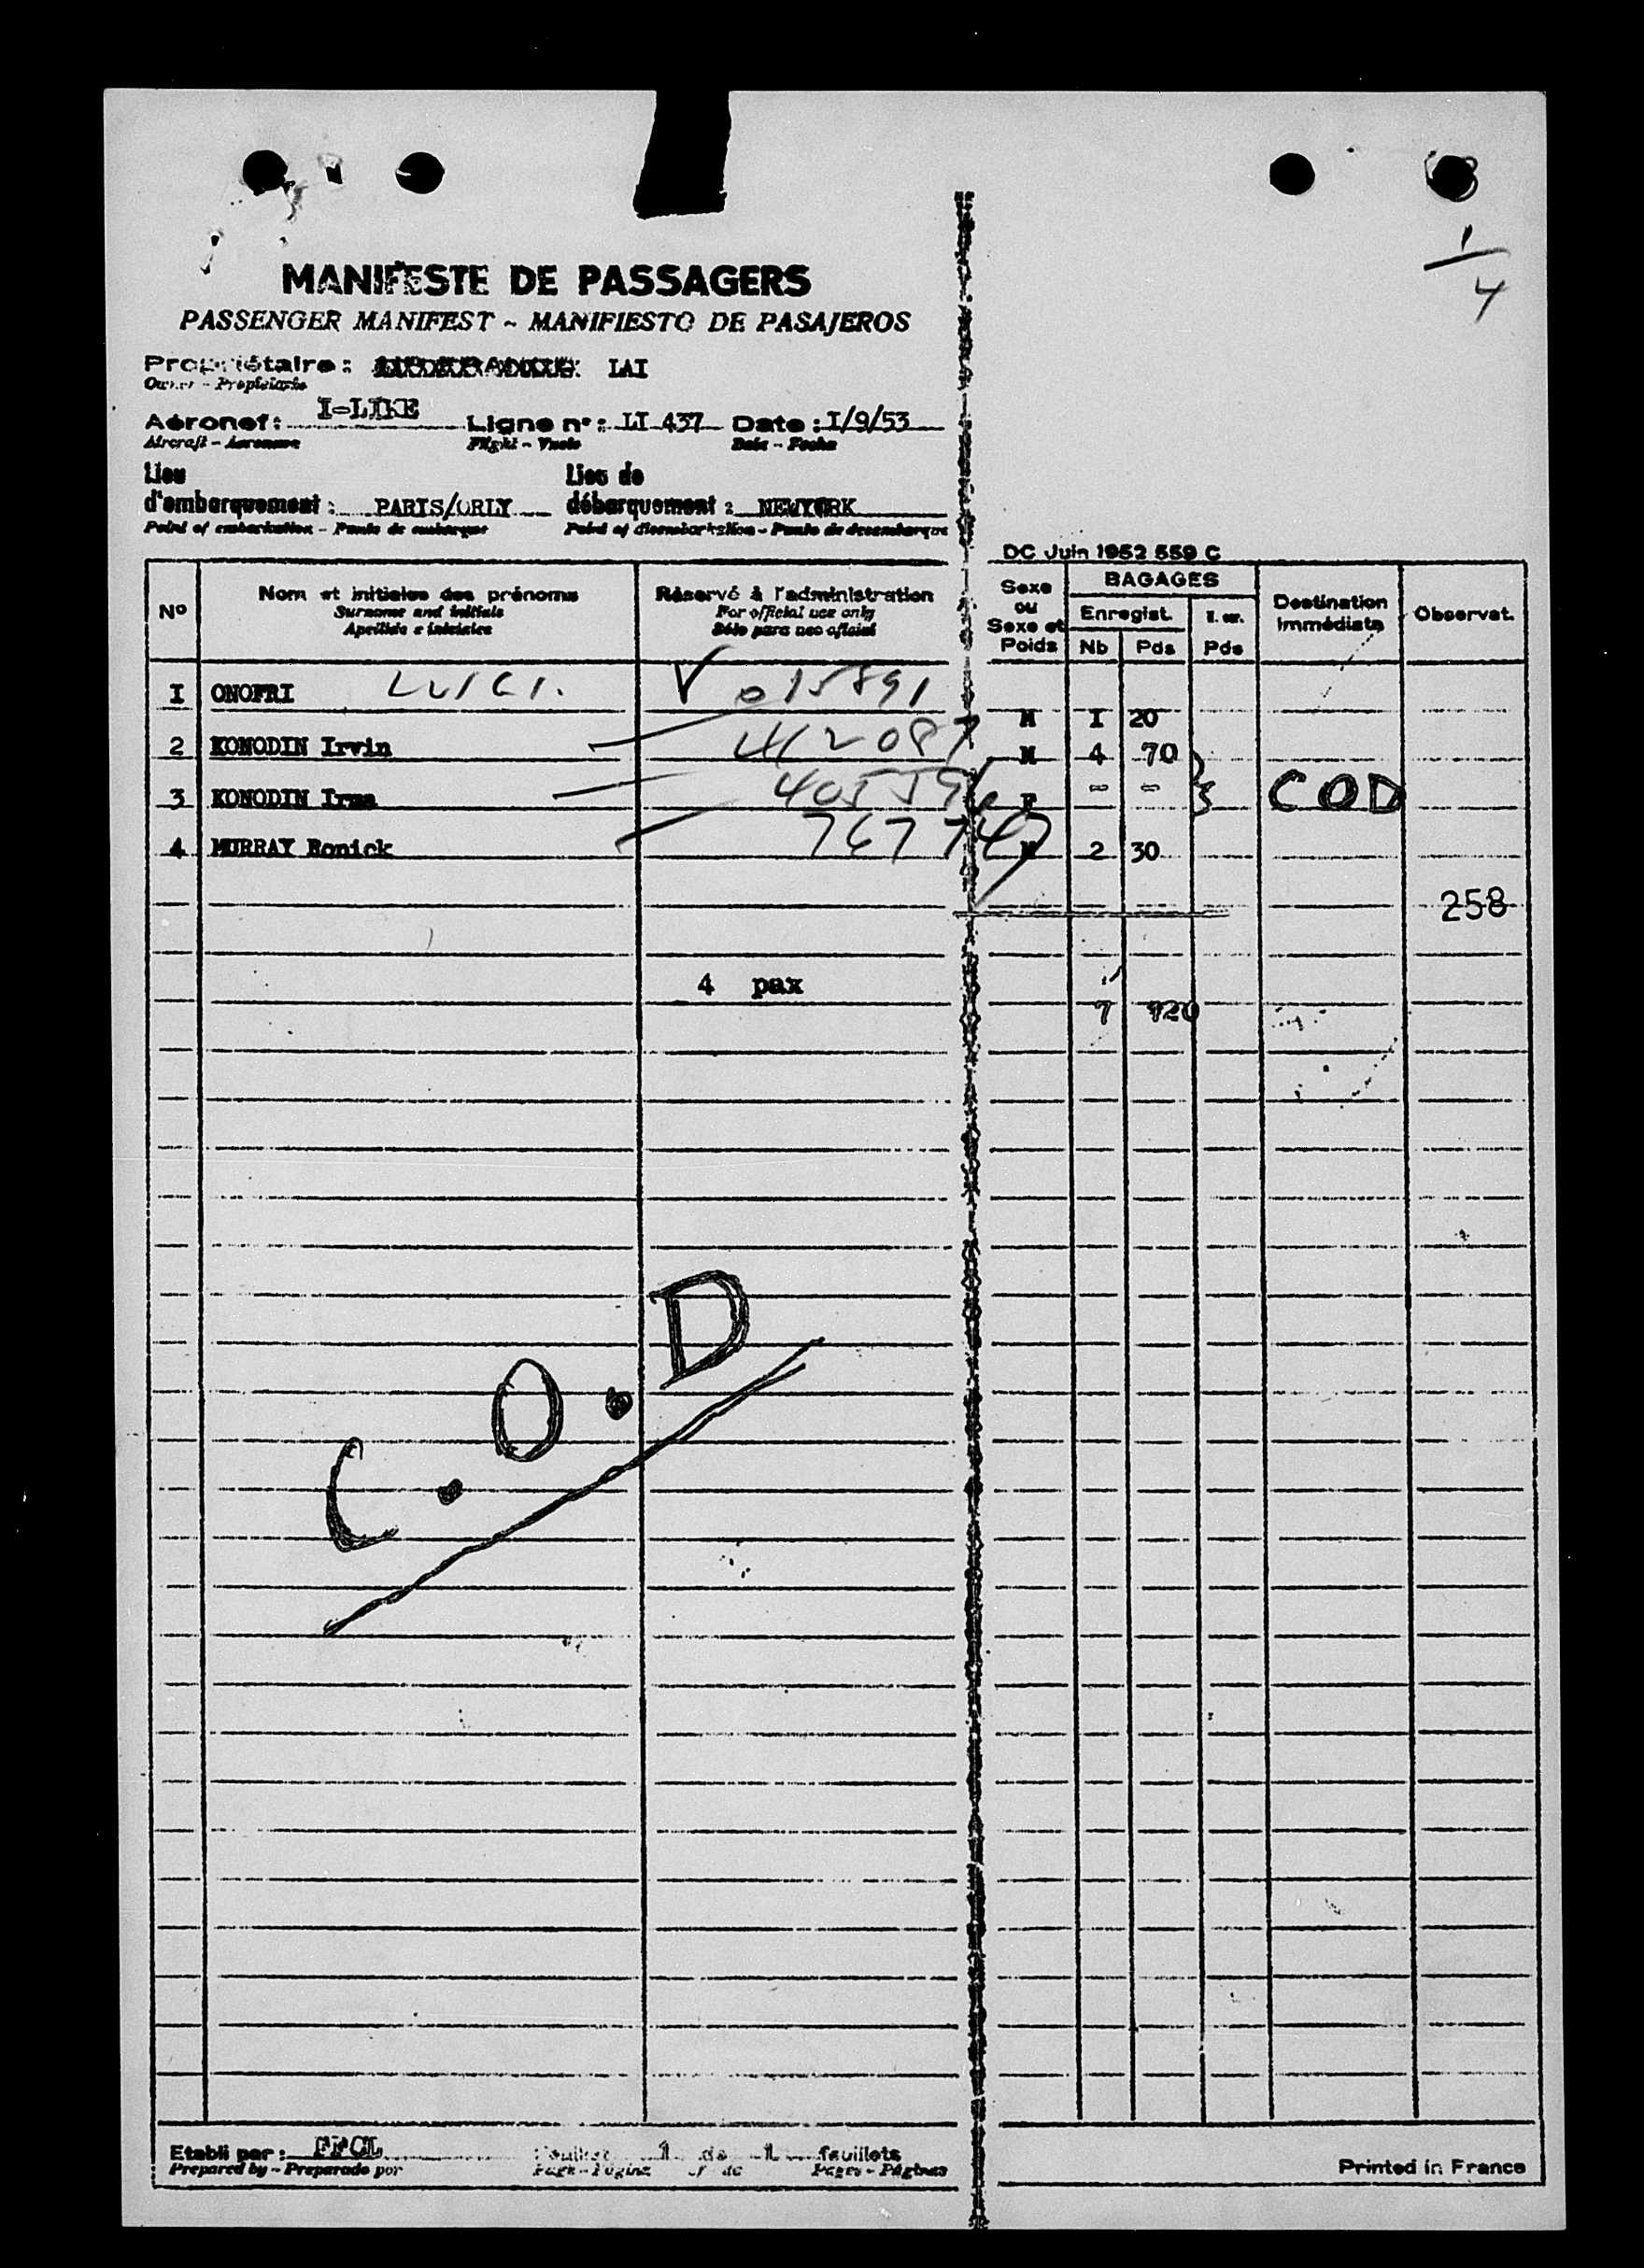 1/4
MANIFESTE DE PASSAGERS
PASSENGER MANIFEST - MANIFIESTO DE PASAJEROS
Propriétaire : LAI
Owner - Propietario
Aéronef : I-LIKE Ligne n° : LI 437 Date : I/9/53
Aircraft - Aeronave Flight - Vuelo Date - Fecha
Lieu d'embarquement : PARIS/ORLY Lieu de débarquement : NEWYORK
Point of embarkation - Punto de embarque Point of disembarkation - Punto de desembarque
DC Juin 1952 559 C
N° Nom et initiales des prénoms Réservé à l'administration Sexe ou Sexe et Poids BAGAGES Enregist. Nb Pds Pds Destination immédiate Observat.
Surname and initials For official use only
Apellido e iniciales Sólo para uso oficial
I ONOFRI LUIGI. V 015891 M I 20
2 KONODIN Irvin 412087 M 4 70
3 KONODIN Irma 405596 F - - COD
4 MURRAY Ronick 767747 M 2 30
258
4 pax
7 120
C.O.D
Etabli par : 1 de 1 feuillets
Prepared by - Preparado por Page - Página of de Pages - Páginas
Printed in France